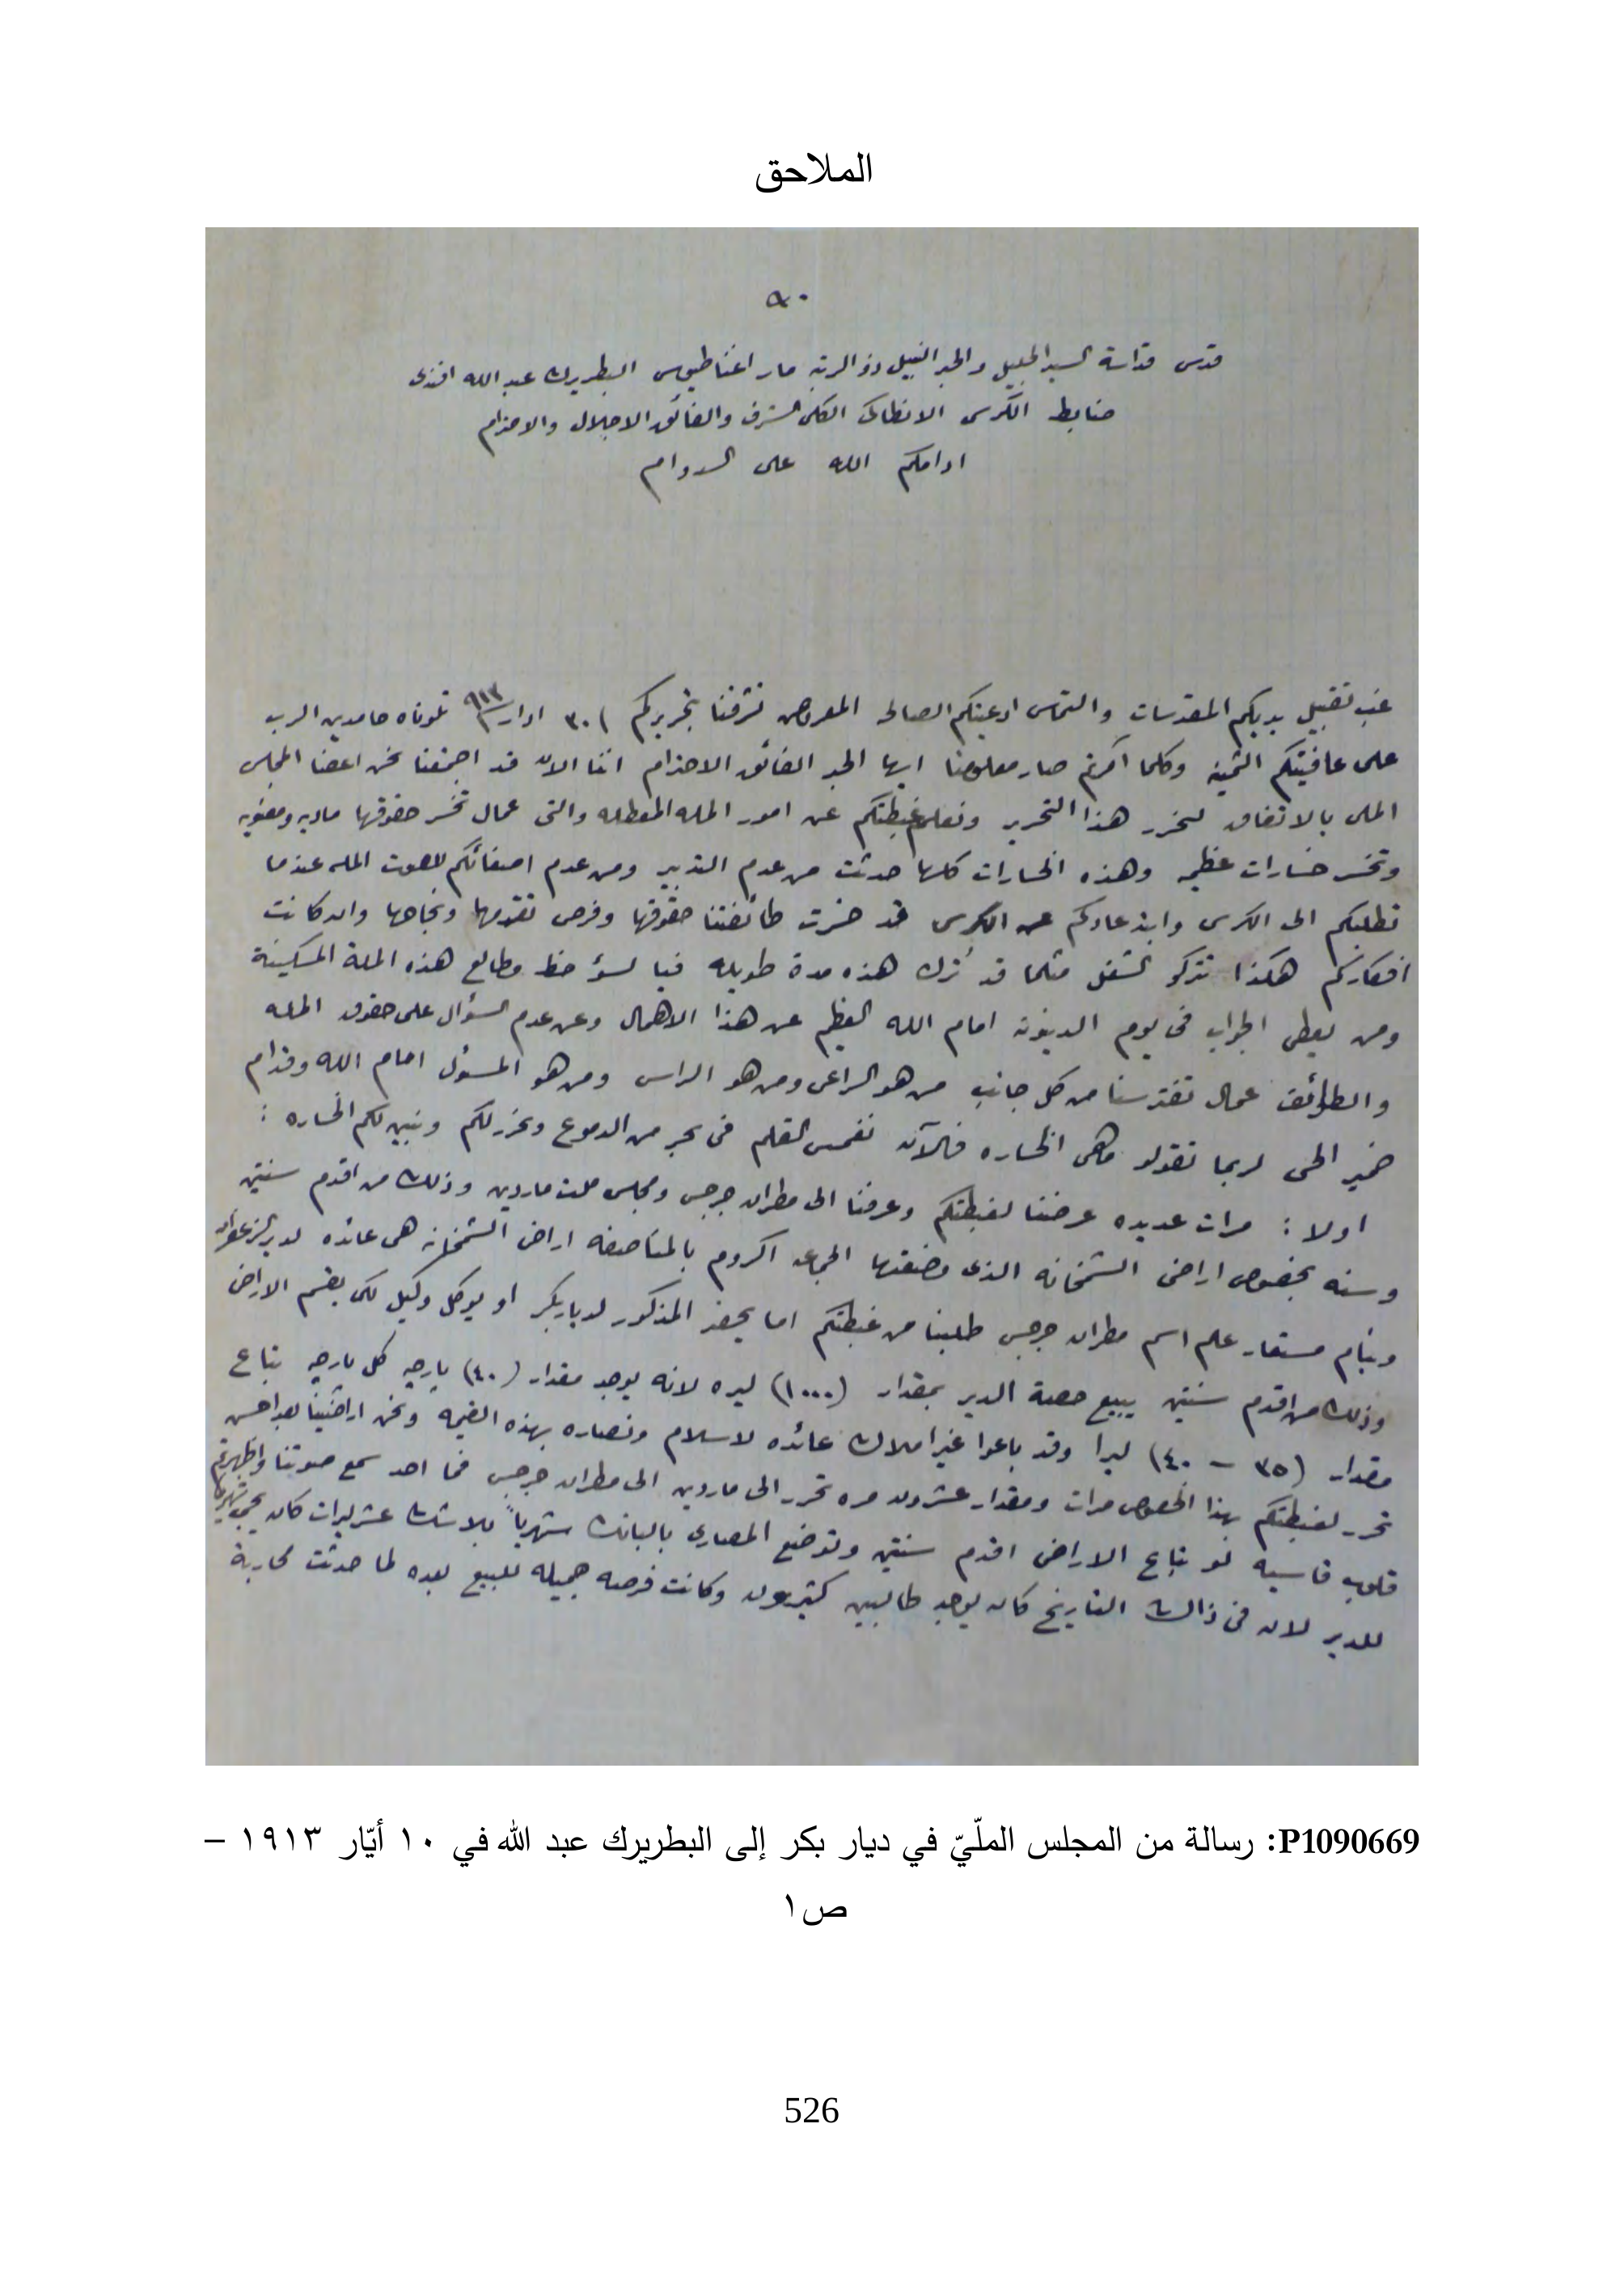 الملاحق
٩٠
قدس قداسة السيد الجليل والحبر النبيل ذو الرتبه مار اغناطيوس البطريرك عبد الله افندى
ضابط الكرسى الانطاكى الكلى الشرف والفائق الاجلال والاحترام
ادامكم الله على الدوام
غب تقبيل يديكم المقدسات والتماس ادعيتكم الصالحه المعروض تشرفنا بتحريركم ٣٠ ادار ٩١٣ تلوناه حامدين الرب
على عافيتكم الثمينه وكلما امرتم صار معلومنا ايها الحبر الفائق الاحترام اننا الان قد اجتمعنا نحن اعضا المجلس
الملى بالاتفاق لنحرر هذا التحرير ونعلم غبطتكم عن امور المله المعطله والتى عمال تخسر حقوقها ماديه ومعنويه
وتخسر خسارات عظيمه وهذه الخسارات كلها حدثت من عدم التدبير ومن عدم اصغائكم لصوت المله عندما
تطلبكم الى الكرسى وابتعادكم عن الكرسى قد خسرت طائفتنا حقوقها وفرص تقدمها ونجاحها وان كانت
افكاركم هكذا تتركو الشغل مثلما قد ترك هذه مدة طويله فيا لسؤ حظ وطالع هذه الملة المسكينة
ومن يعطى الجواب فى يوم الدينونه امام الله العظيم عن هذا الاهمال وعن عدم السؤال على حقوق المله
والطوائف عمال تفترسنا من كل جانب من هو الراعى ومن هو الراس ومن هو المسئول امام الله وقدام
ضمير الحى لربما تقولو ماهى الخساره فالآن نغمس القلم فى بحر من الدموع ونحرر لكم ونبين لكم الخساره :
اولا : مرات عديده عرضنا لغبطتكم وعرفنا الى مطران جرجس ومجلس ملت ماردين وذلك من اقدم سنتين
وسنه بخصوص اراضى الشمخانه الذى وضعتها الجماعه اكروم بالمناصفه اراضى الشمخانه هى عائده لدير الزعفران
وبنام مستعار على اسم مطران جرجس طلبنا من غبطتكم اما يحضر المذكور لدياربكر او يوكل وكيل لكى يقسم الاراضى
وذلك من اقدم سنتين يبيع حصة الدير بمقدار (١٠٠٠) ليره لانه يوجد مقدار (٤٠) پارچه كل پارچه تباع
مقدار (٣٥ – ٤٠) ليرا وقد باعوا غير املاك عائده لاسلام ونصاره بهذه القيمه ونحن اراضينا بعد احسن
تحرر لغبطتكم بهذا الخصوص مرات ومقدار عشرون مره تحرر الى ماردين الى مطران جرجس فما احد سمع صوتنا واظهرتم
قلوب قاسيه لو تباع الاراضى اقدم سنتين وتوضع المصارى بالبانك شهرياً بلا شك عشر ليرات كان يجى شهريا
للدير لان فى ذالك التاريخ كان يوجد طالبين كثيرون وكانت فرصه جميله للبيع بعده لما حدثت محاربة
P1090669: رسالة من المجلس الملّيّ في ديار بكر إلى البطريرك عبد الله في ١٠ أيّار ١٩١٣ –
ص١
526